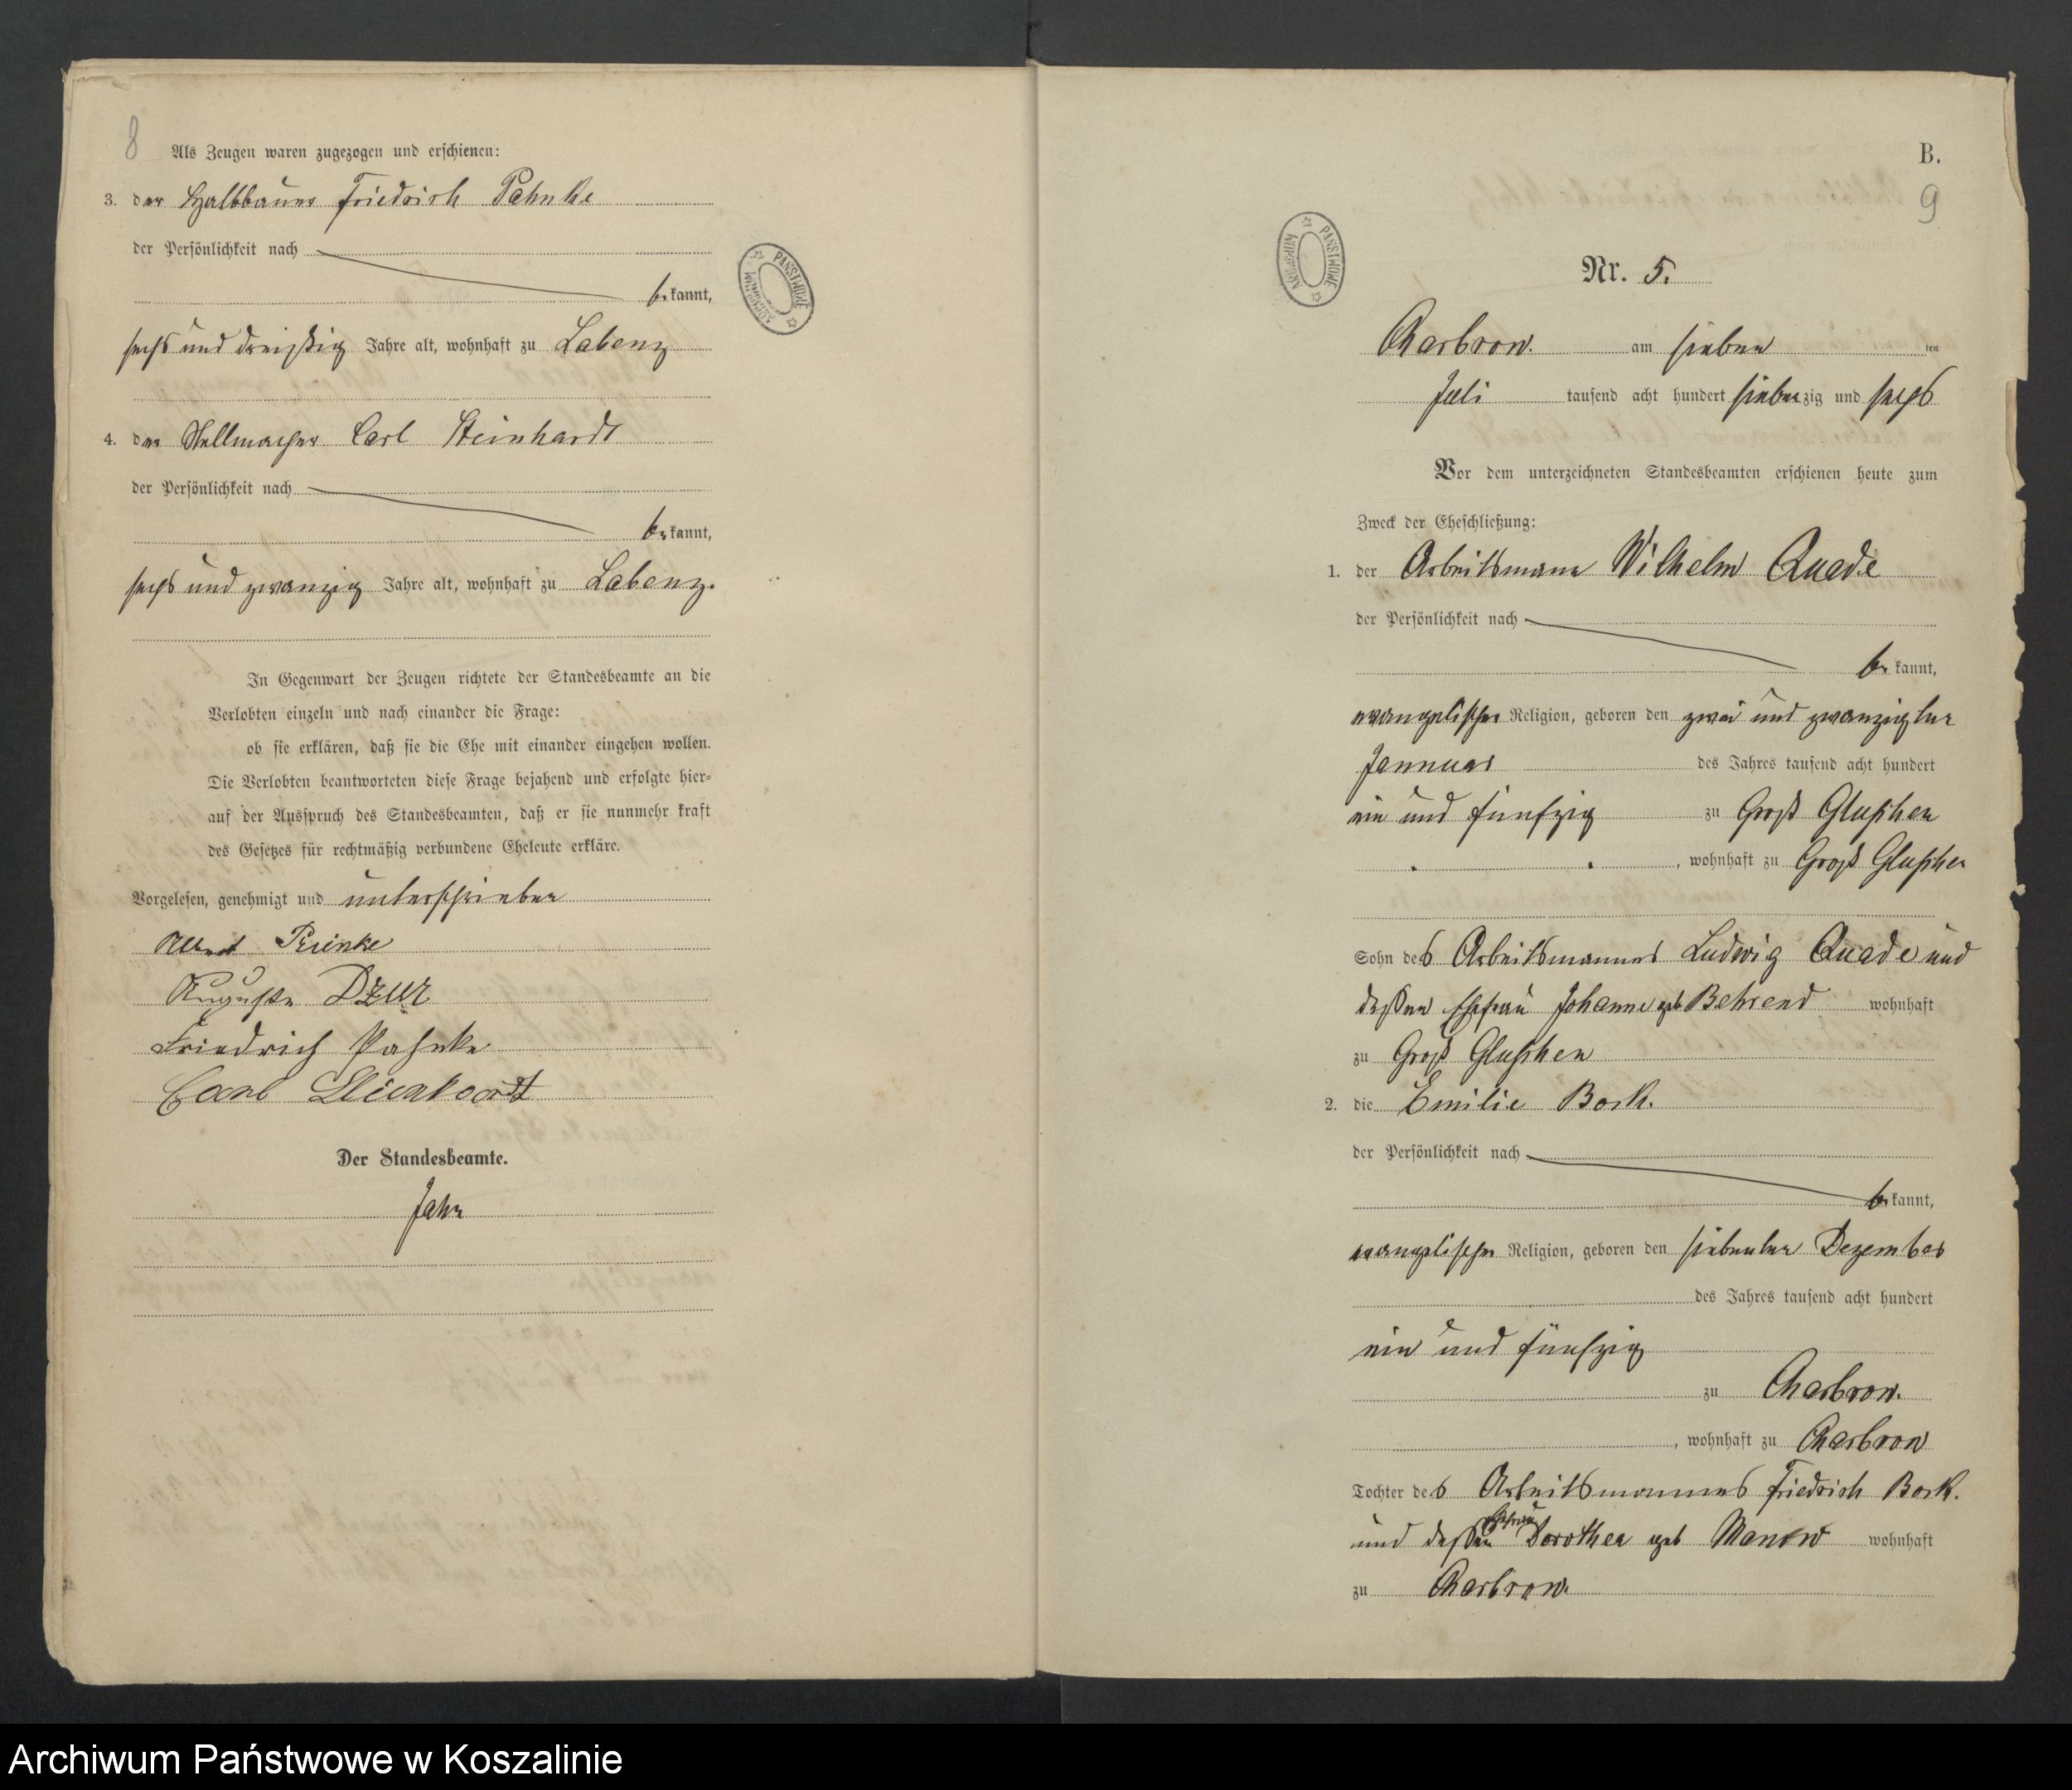 8
Als Zeugen waren zugezogen und erschienen:
3. der Halbbauer Friedrich Pahnke
der Persönlichkeit nach
bekannt,
sechs und dreißig Jahre alt, wohnhaft zu Labenz
4. der Stellmacher Carl Steinhardt
der Persönlichkeit nach
bekannt,
sechs und zwanzig Jahre alt, wohnhaft zu Labenz.
In Gegenwart der Zeugen richtete der Standesbeamte an die
Verlobten einzeln und nach einander die Frage:
ob sie erklären, daß sie die Ehe mit einander eingehen wollen.
Die Verlobten beantworteten diese Frage bejahend und erfolgte hier-
auf der Ausspruch des Standesbeamten, daß er sie nunmehr kraft
des Gesetzes für rechtmäßig verbundene Eheleute erkläre.
Vorgelesen, genehmigt und unterschrieben
Albert
Auguste Dzur
Friedrich Pahnke
Carl Steinhardt
Der Standesbeamte.
Jahn
ARCHIWUM PAŃSTWOWE
B.
9
ARCHIWUM PAŃSTWOWE
Nr. 5.
Charbrow. am sieben ten
Juli tausend acht hundert siebenzig und sechs
Vor dem unterzeichneten Standesbeamten erschienen heute zum
Zweck der Eheschließung:
1. der Arbeitsmann Wilhelm Quade
der Persönlichkeit nach
bekannt,
evangelischer Religion, geboren den zwei und zwanzigsten
Januar des Jahres tausend acht hundert
ein und fünfzig zu Groß Gluschen
, wohnhaft zu Groß Gluschen
Sohn des Arbeitsmannes Ludwig Quade und
dessen Ehefrau Johanne geb Behrend wohnhaft
zu Groß Gluschen
2. die Emilie Bork.
der Persönlichkeit nach
bekannt,
evangelischer Religion, geboren den siebenten Dezember
des Jahres tausend acht hundert
ein und fünfzig
zu Charbrow.
, wohnhaft zu Charbrow
Tochter des Arbeitsmannes Friedrich Bork.
und dessen Ehefrau Dorothea geb Manow wohnhaft
zu Charbrow.
Archiwum Państwowe w Koszalinie